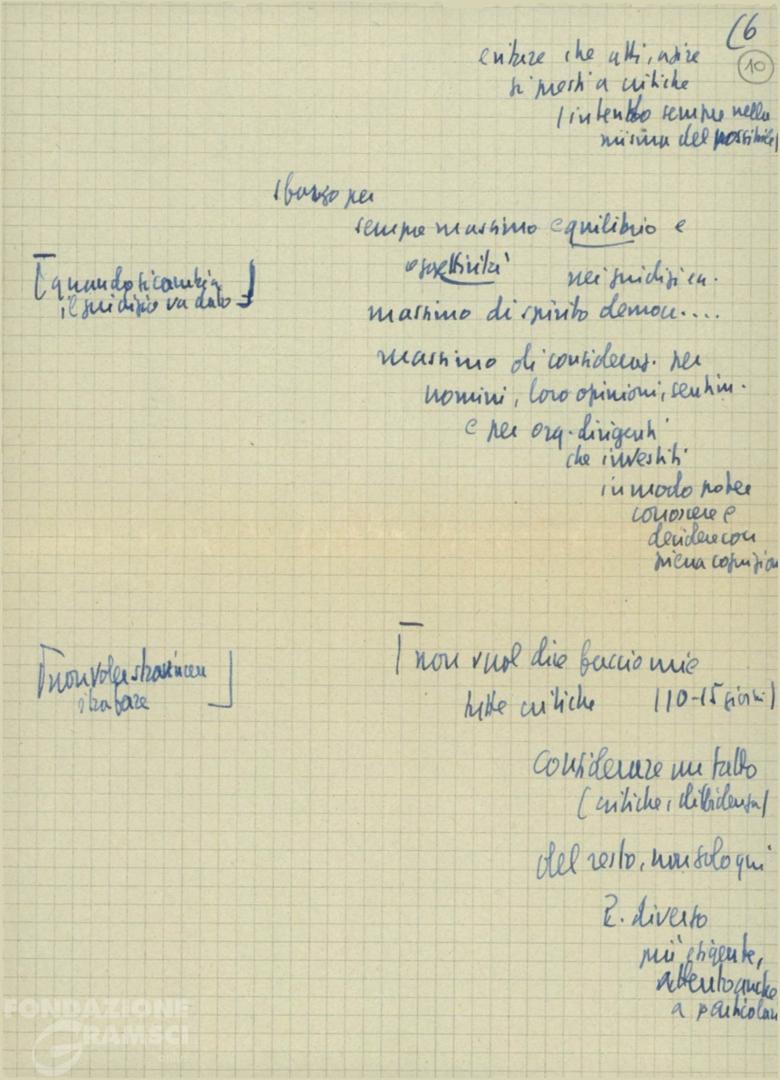 (6
10
evitare che atti, azire
si presti a critiche
(intento sempre nella
misura del possibile)
sforzo per
sempre massimo equilibrio e
oggettività nei giudizi ecc.
[quando si cambia
il giudizio va dato]
massimo di spirito democ....
massimo di consideraz. per
uomini, loro opinioni, sentim.
e per org. dirigenti
che investiti
in modo poter
conoscere e
decidere con
piena cognizion
[non vuol dire faccio mie
tutte critiche (10-15 giorni)
[non voler stravincere
strafare]
Considerare un fatto
(critiche, diffidenza)
del resto, non solo qui
P. diverso
più esigente,
attento anche
a particolari
FONDAZIONE
GRAMSCI